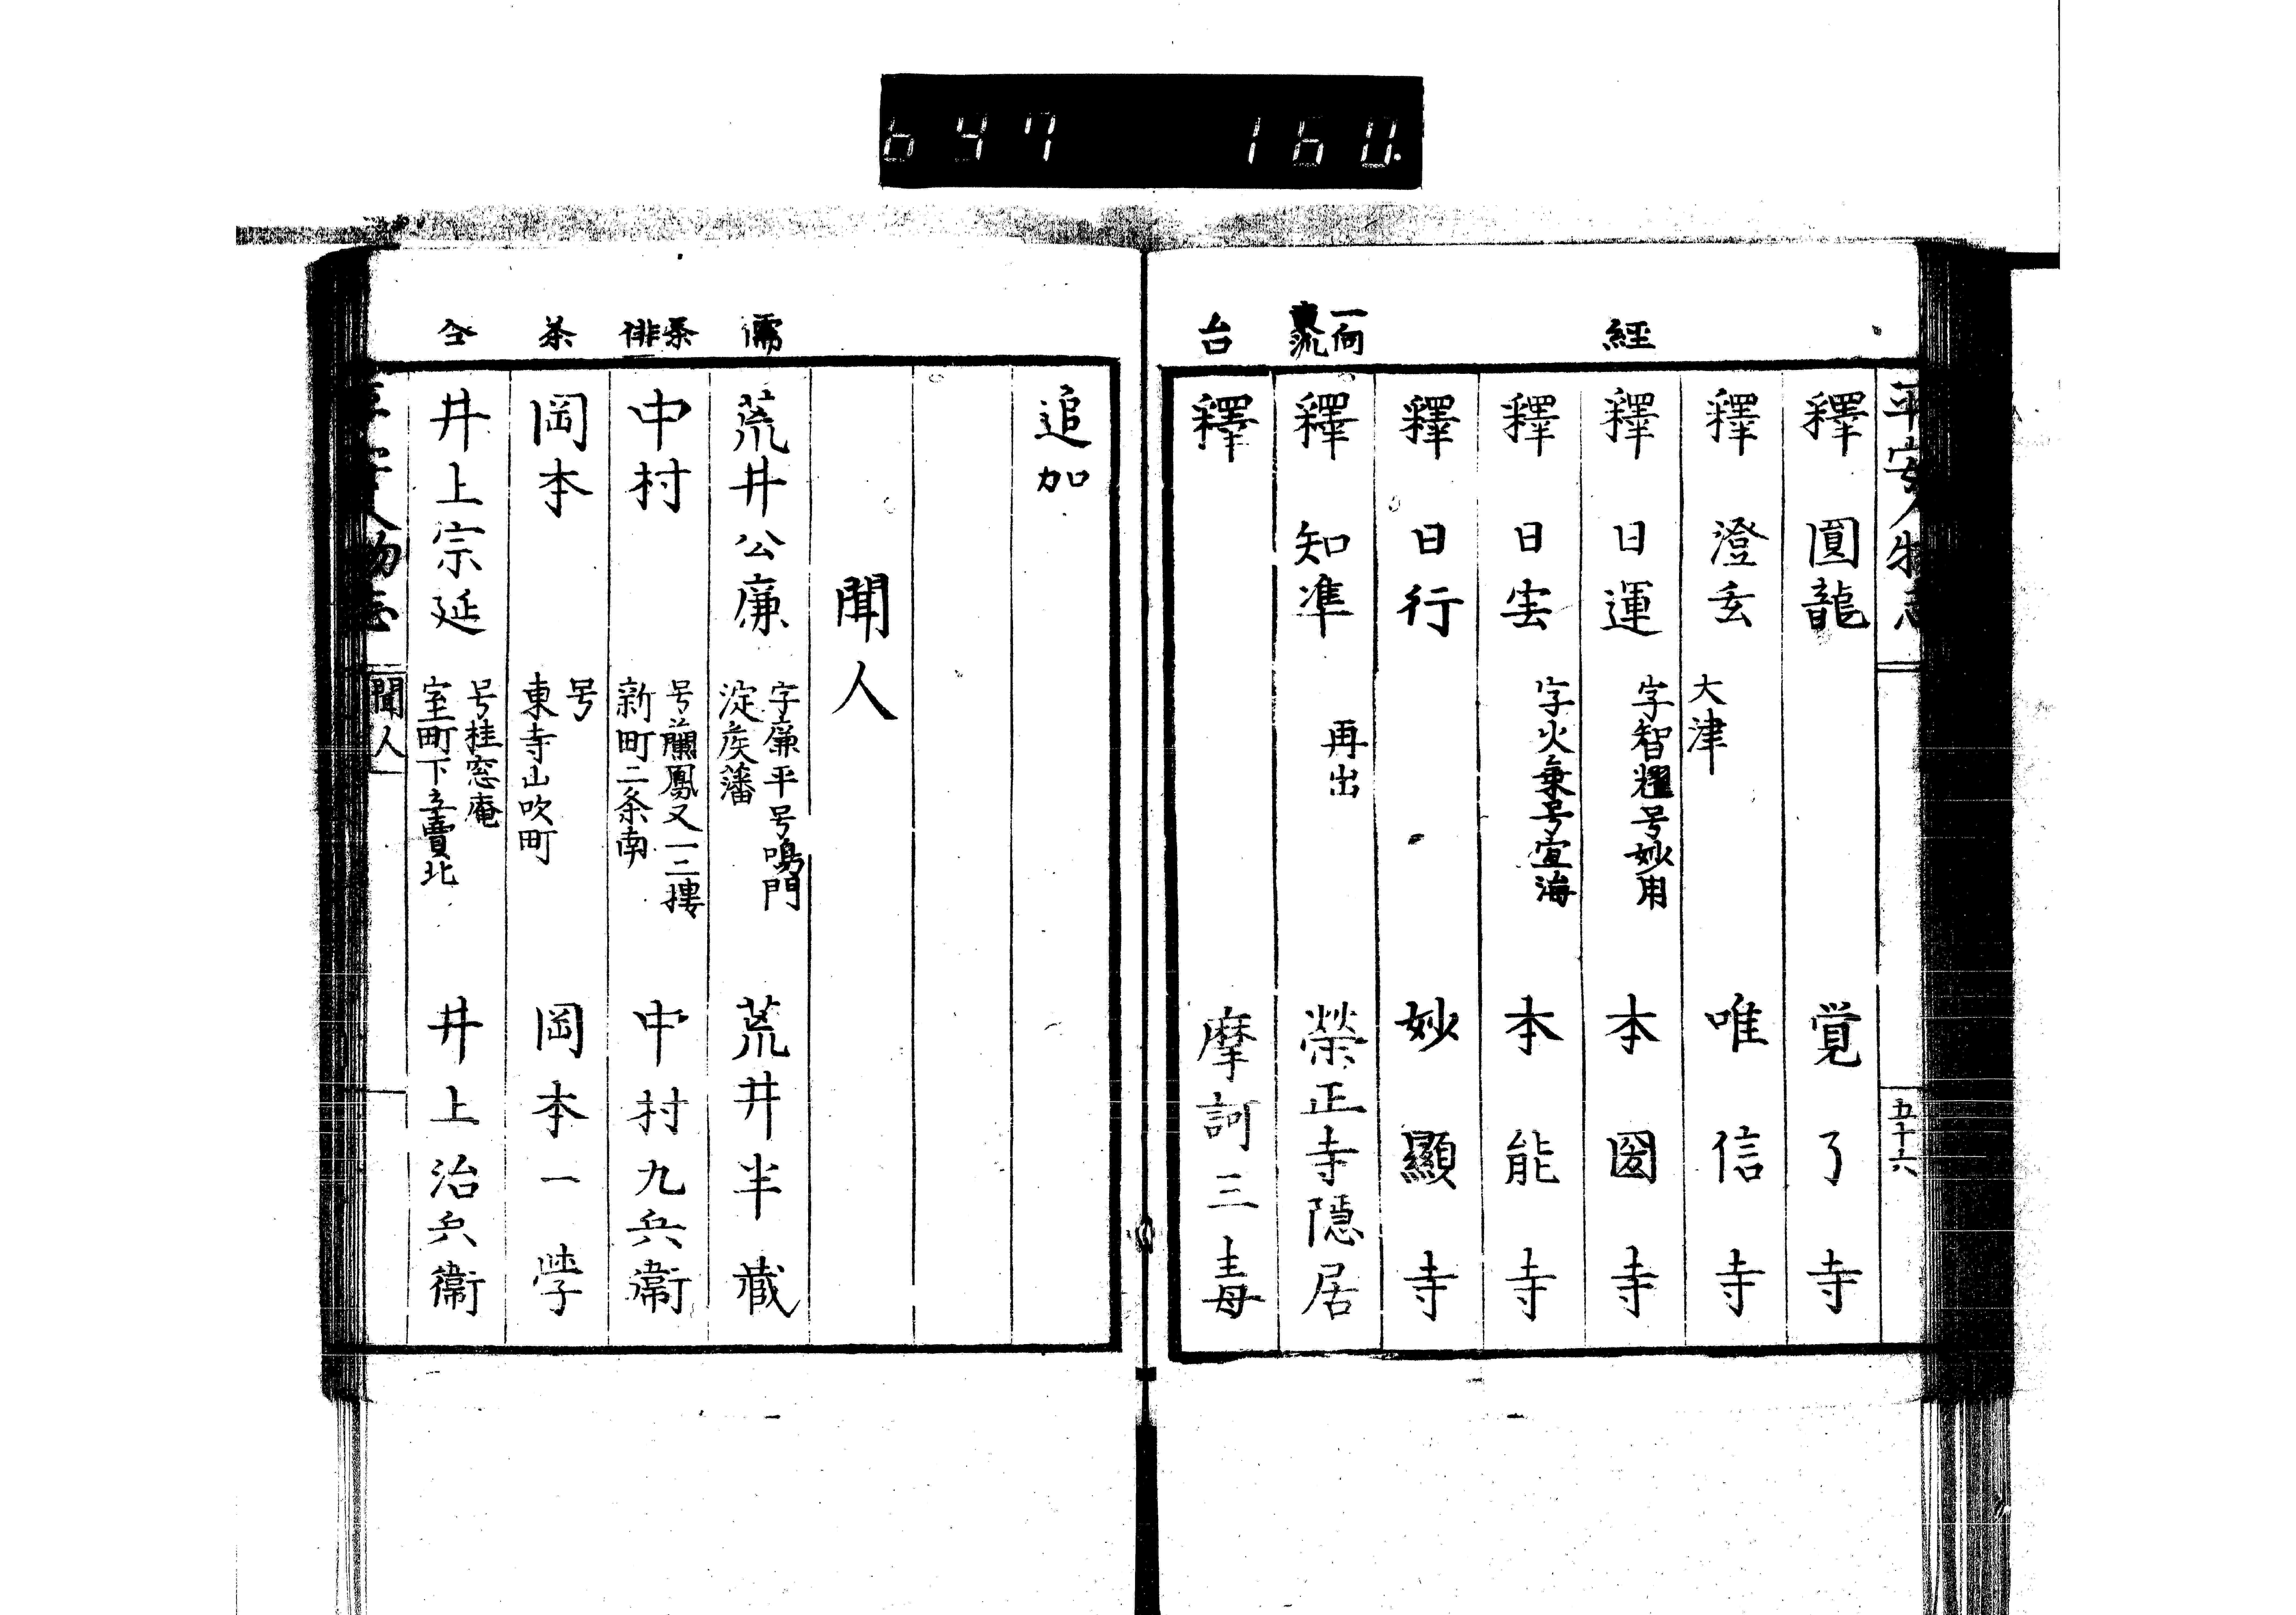 647 160.
平安人物志
五十六
釋 圓龍 覚了寺
釋 澄玄 大津 唯信寺
經
釋 日運 字智耀号妙用 本圀寺
釋 日宝 字火乗号宣海 本能寺
釋 日行 妙顯寺
一向
釋 知準 再出 榮正寺隠居
台
釋 摩訶三毒
追加
聞人
儒
荒井公廉 字廉平号鳴門
淀矦藩 荒井半藏
茶
俳
中村 号蘭鳳又一二摟
新町二条南 中村九兵衞
茶
岡本 号
東寺山吹町 岡本一学
仝
井上宗延 号桂窓庵
室町下立賣北 井上治兵衞
聞人